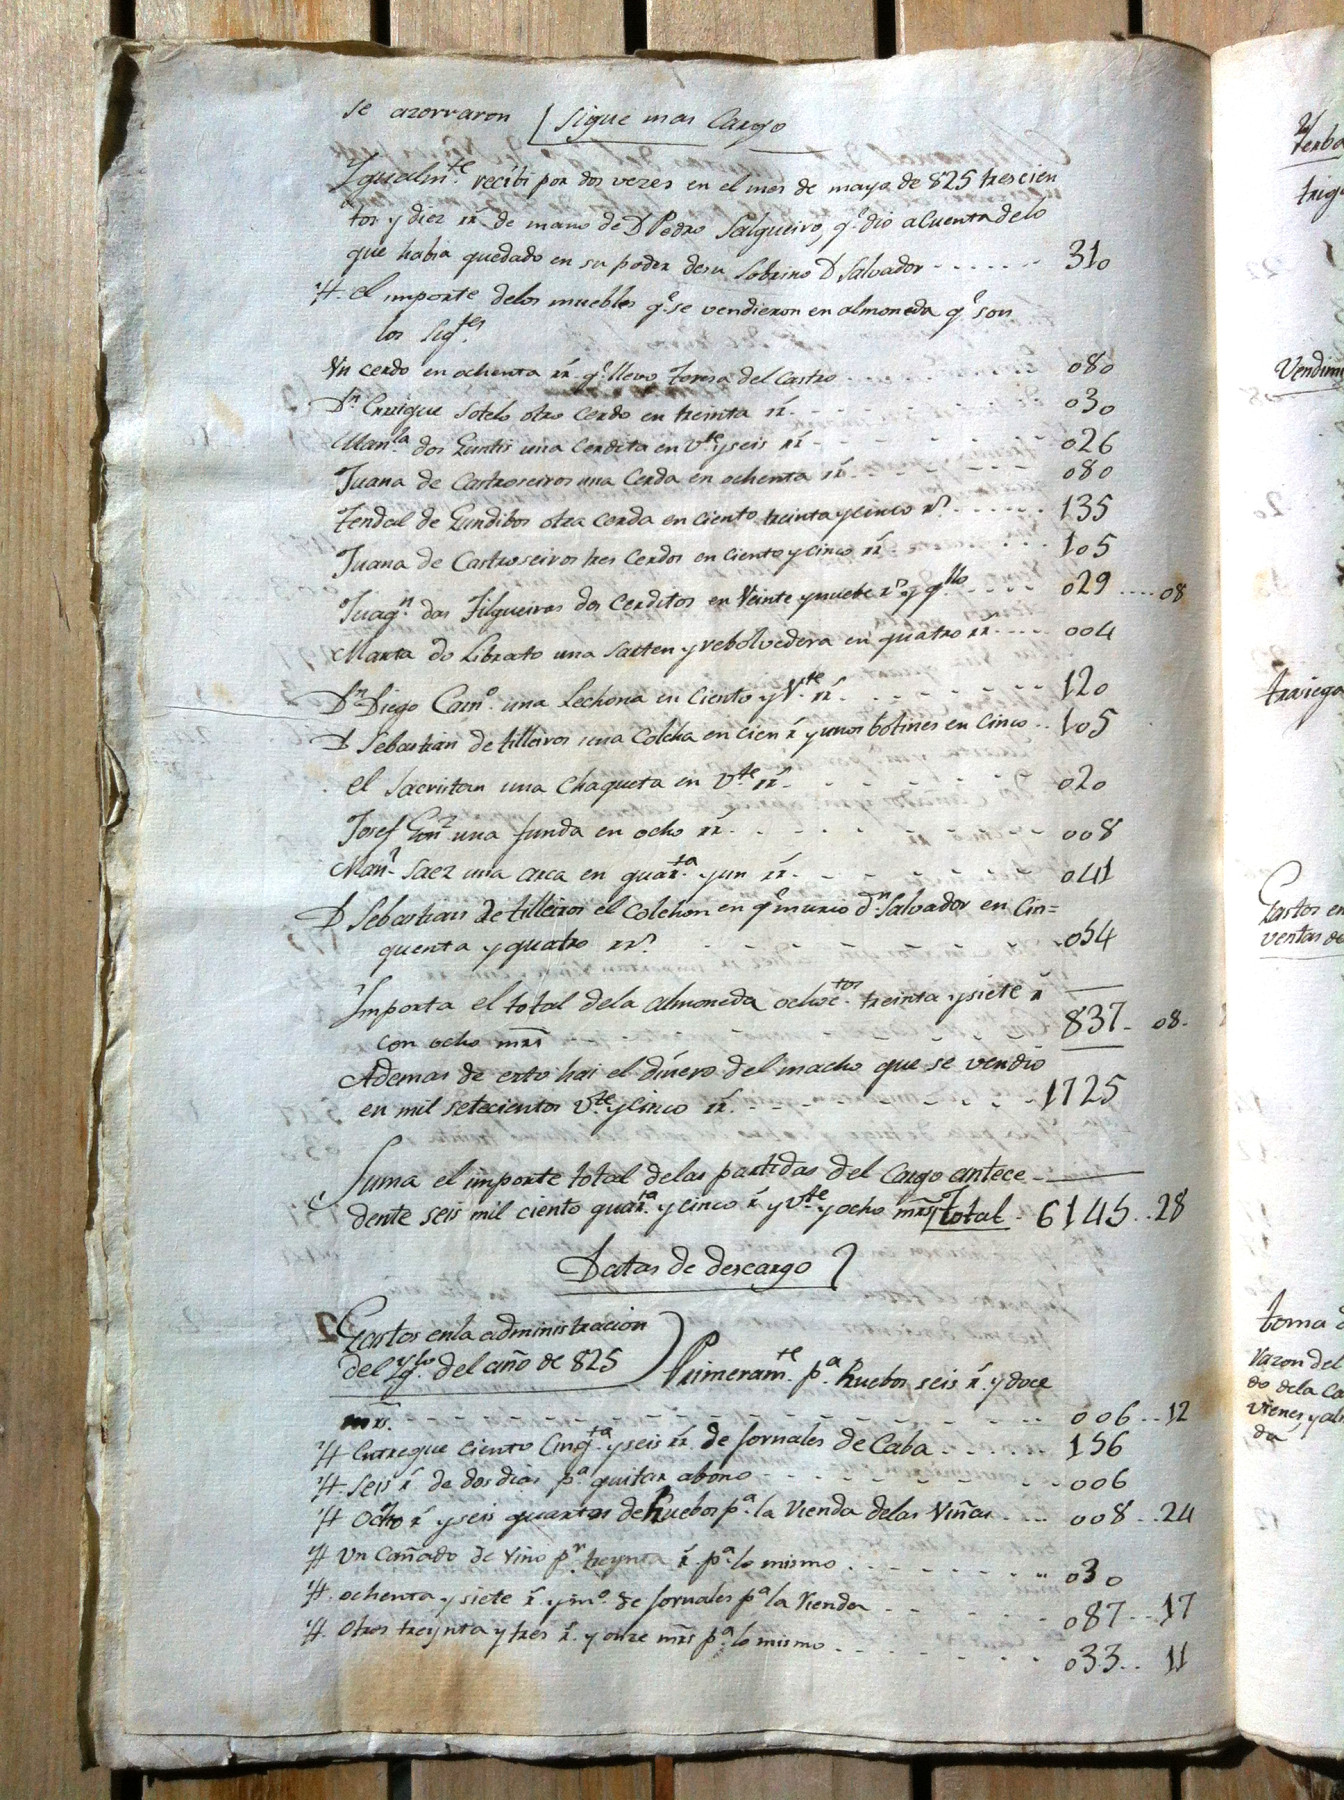 se azorraron / sigue mas Cargo
Igualm.te recibi por dos vezes en el mes de mayo de 825 trescien
tos y diez rr.s de mano de D Pedro Salgueiro, q.e dio a cuenta delo
que habia quedado en su poder desu sobrino D Salvador - - - - - - 310
It. el importe delos muebles q.e se vendieron en almoneda q.e son
los sig.tes
Un cerdo en ochenta rr. q.e llevo Teresa del Castro 080
D.n Enrrique Sotelo otro Cerdo en treinta rr.s - - - - 030
Man.la dos Guntis una Cerdita en v.te y seis rr.s - - - - 026
Juana de Castroseiros una Cerda en ochenta rr.s - - - - 080
Tendal de Gundibos otra cerda en ciento treinta y cinco r.s - - - - - - 135
Juana de Castroseiros tres Cerdos en ciento y cinco rr.s - - - 105
Juaq.n das Filgueiras dos Cerditos en Veinte y nuebe r.s y q.llo - - - - 029 - - - - 08
Marta do Librato una Sarten y rebolvedera en quatro rr.s - - - - 004
D.n Diego Cam.o una Lechona en Ciento y V.te rr.s - - - - - - 120
D Sebastian de tilleiros una Colcha en cien r.s y unos botines en Cinco - - 105
el Sacristan una Chaqueta en v.te rr.s - - - - - - - 020
Josef Gon.z una funda en ocho rr. - - - - - - - - 008
Man.l Saez una arca en quar.ta y un rr.s - - - - - - - 041
D Sebastian de tilleiros el Colchon en q.e murio d.n Salvador en Cin=
quenta y quatro rr.s - - - - - - - - 054
Importa el total dela almoneda ochoc.tos treinta y siete r.s
con ocho mrs 837 - 08 -
Ademas de esto hai el dinero del macho que se vendio
en mil setecientos v.te y Cinco rr. - - - - - - - - 1725
Suma el importe total delas partidas del Cargo antece
dente seis mil ciento quar.ta y cinco r.s y v.te y ocho mrs Total - 6145 - - 28
Datas de descargo
Gastos enla administracion
del Yg.to del año de 825
Primeram.te p.a huebos seis r.s y doce
mrs. - - - - - - - - - - - 006 - - 12
It Entregue ciento Cinq.ta y seis rr. de Jornales de Caba - - - - - - 156
It. Seis r.s de dos dias p.a quitar abono - - - - - - - - 006
It ocho r.s y seis quartos de huebos p.a la Vienda delas Viñas - - - - 008 - - 24
It Un Cañado de Vino p.r treynta r.s p.a lo mismo - - - - - - - - 030
It. ochenta y siete r.s y m.o de Jornales p.a la Vienda - - - - - - - 087 - - 17
It. Otros treijnta y tres r.s y onze mrs p.a lo mismo - - - - - - - 033 - - 11
Yerba
trigo
Vendimi
trasiega
Gastos en
ventas de
toma d
razon del
do dela Ca
vienes y al
da